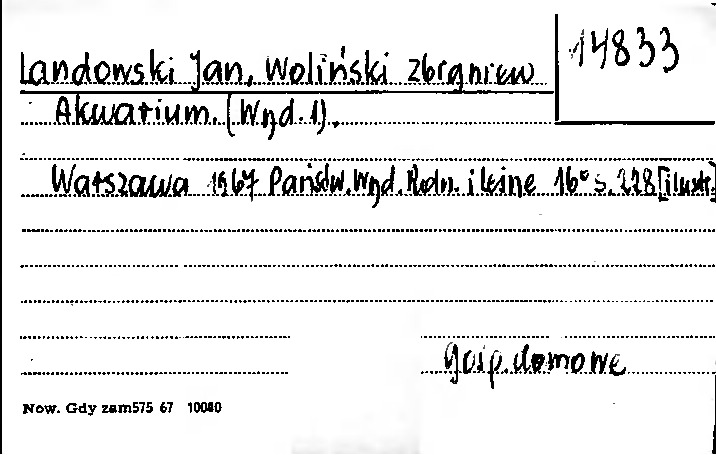 14833
Landowski Jan, Woliński Zbigniew
Akwarium. (Wyd. 1).
Warszawa 1967 Państw. Wyd. Roln. i Leśne 16° s. 228 [ilustr.]
gosp. domowe
Now. Gdy zam575 67 10080